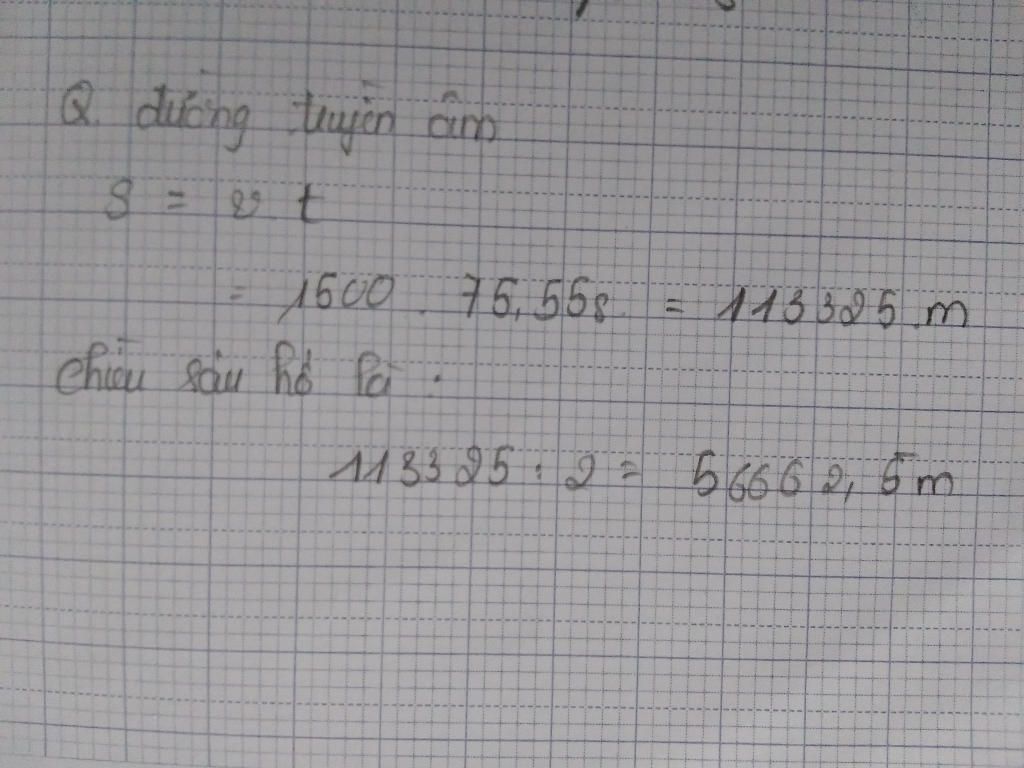 Q. đường truyền âm
S = v t
= 1500 . 75,55s = 113325 m
Chiều sâu hố là :
113325 : 2 = 56662,5m